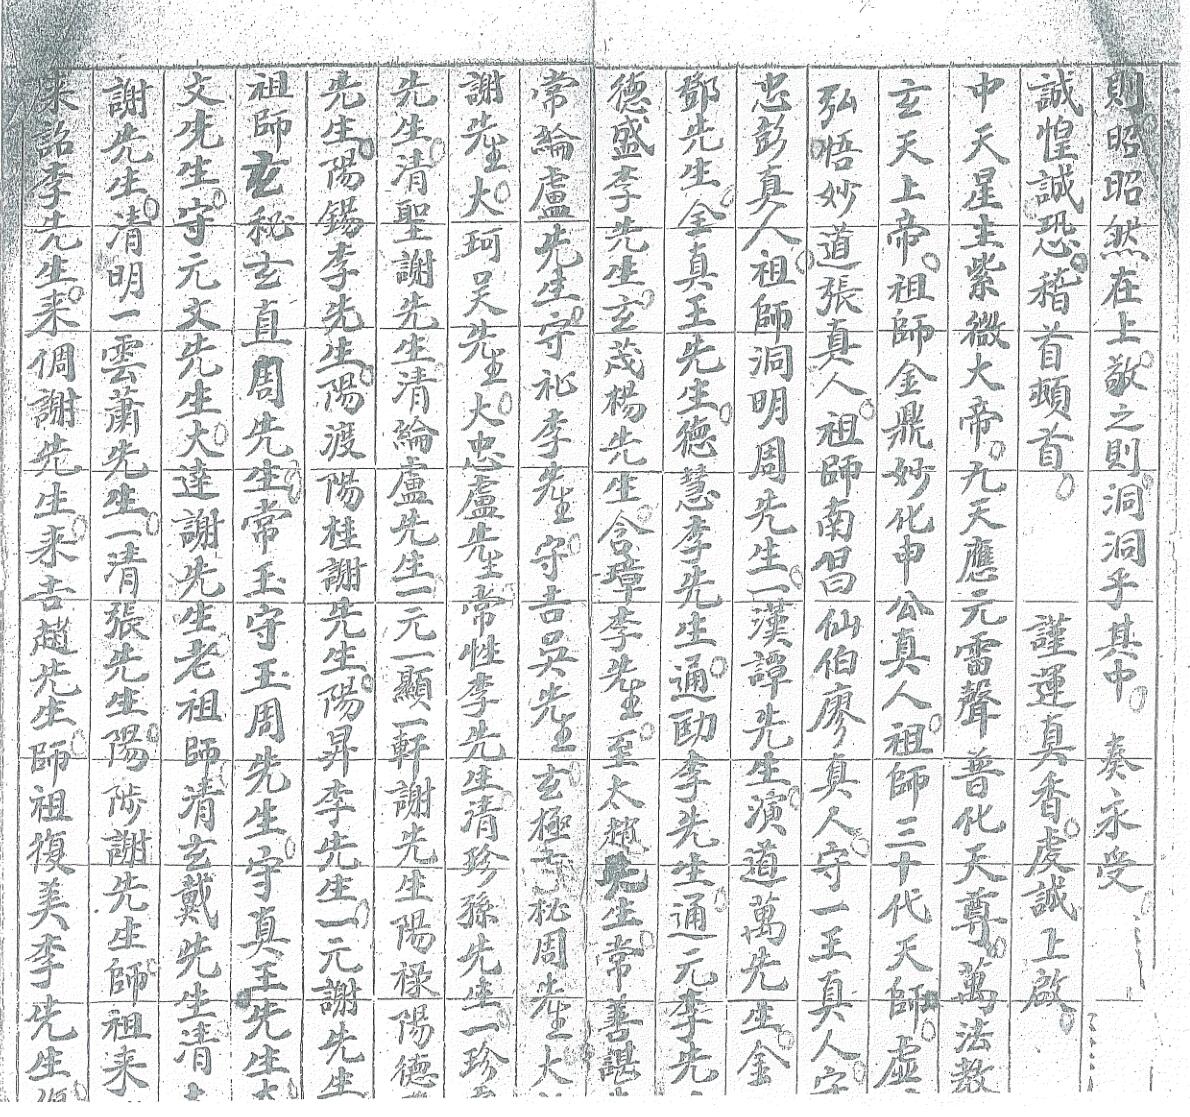 則昭昭然在上敬之則洞洞乎其中 奏永受
誠惶誠恐稽首頓首 謹運真香虔誠上啟
中天星主紫微大帝九天應元雷聲普化天尊萬法教
玄天上帝祖師金鼎妙化申公真人祖師三十代天師虛
弘悟妙道張真人祖師南昌仙伯廖真人守一王真人守
忠彭真人祖師洞明周先生一漢譚先生演道萬先生金
鄧先生全真王先生德慧李先生通勖李先生通元李先
德盛李先生玄茂楊先生含璋李先生至太趙先生常善諶
常綸盧先生守礼李先生守吉吳先生玄極守秘周先生大
謝先生大珂吳先生大忠盧先生常性李先生清珍孫先生一珍
先生清聖謝先生清綸盧先生一元一顯一軒謝先生陽祿陽德
先生陽錫李先生陽渡陽桂謝先生陽昇李先生一元謝先生
祖師玄秘玄直周先生常玉守玉周先生守真王先生
文先生守元文先生大達謝先生老祖師清玄戴先生清
謝先生清明一雲蕭先生一清張先生陽陟謝先生師祖来
来詔李先生来倜謝先生来吉趙先生師祖復美李先生復